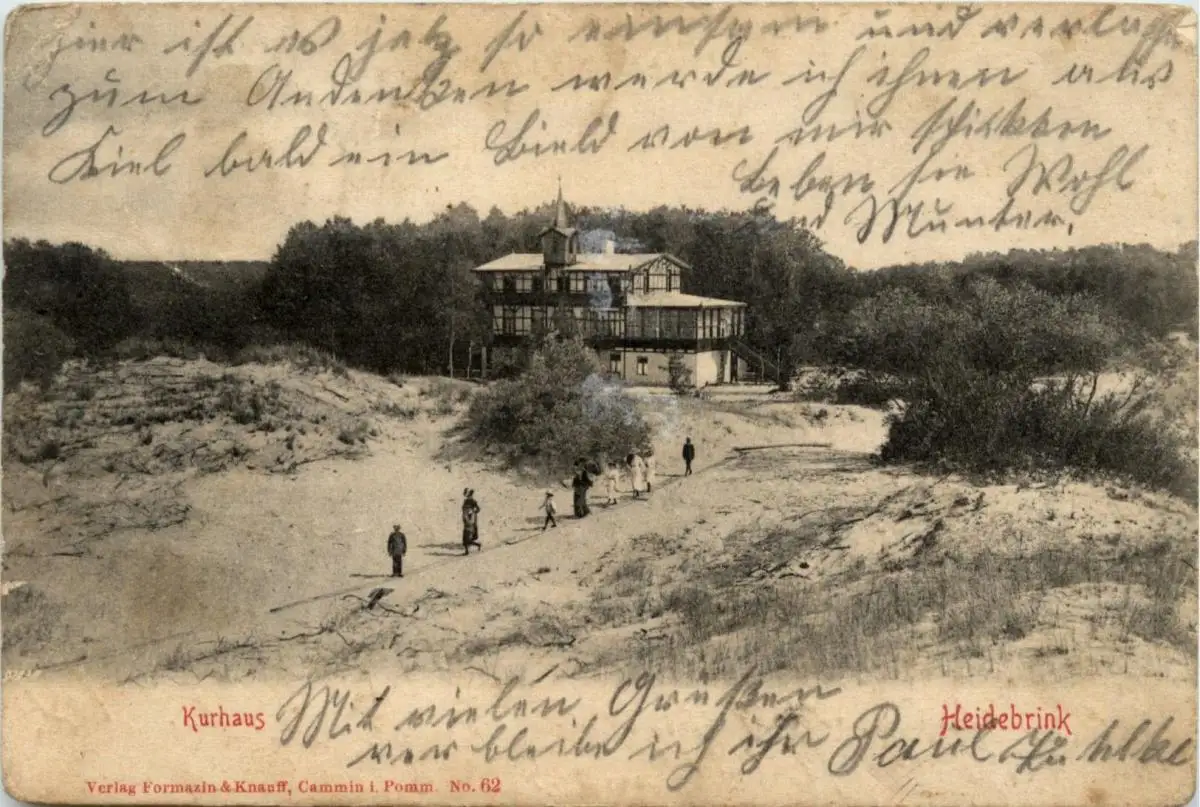 hier ist es jetz so einsam und verlaße
zum Andenken werde ich ihnen aus
Kiel bald ein Bield von mir schikken
Leben sie Wohl
und Munter.
Kurhaus
Heidebrink
Mit vielen Grüßen
verbleibe ich ihr Paul
Verlag Formazin & Knauff, Cammin i. Pomm. No. 62